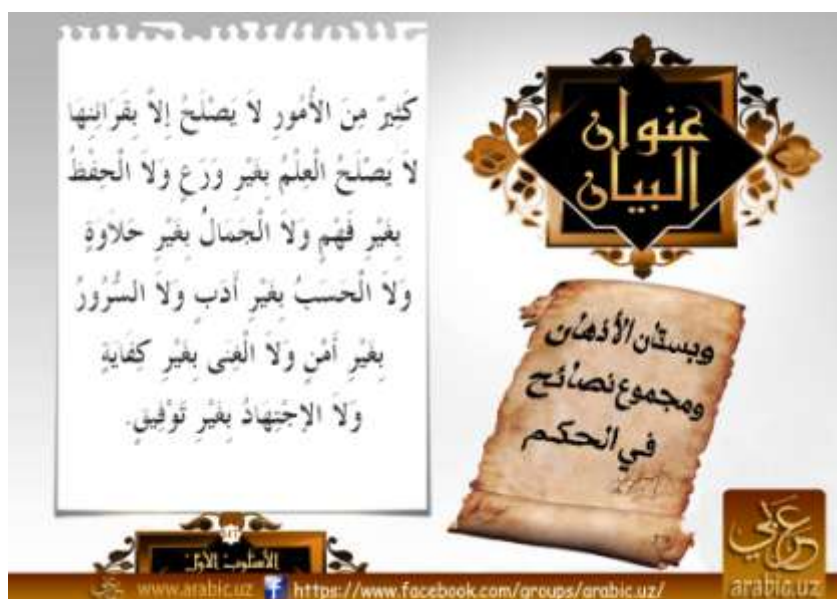 كَثِيرٌ مِنَ الْأُمُورِ لاَ يَصْلَحُ إِلاَّ بِقَرَائِنِهَا
لاَ يَصْلَحُ الْعِلْمُ بِغَيْرِ وَرَعٍ وَلاَ الْحِفْظُ
بِغَيْرِ فَهْمٍ وَلاَ الْجَمَالُ بِغَيْرِ حَلاَوَةٍ
وَلاَ الْحَسَبُ بِغَيْرِ أَدَبٍ وَلاَ السُّرُورُ
بِغَيْرِ أَمْنٍ وَلاَ الْغِنَى بِغَيْرِ كِفَايَةٍ
وَلاَ الاِجْتِهَادُ بِغَيْرِ تَوْفِيقٍ.
عنوان
البيان
وبستان الأذهان
ومجموع نصائح
في الحكم
الأسلوب الأول
www.arabic.uz
https://www.facebook.com/groups/arabic.uz/
عربي
arabic.uz